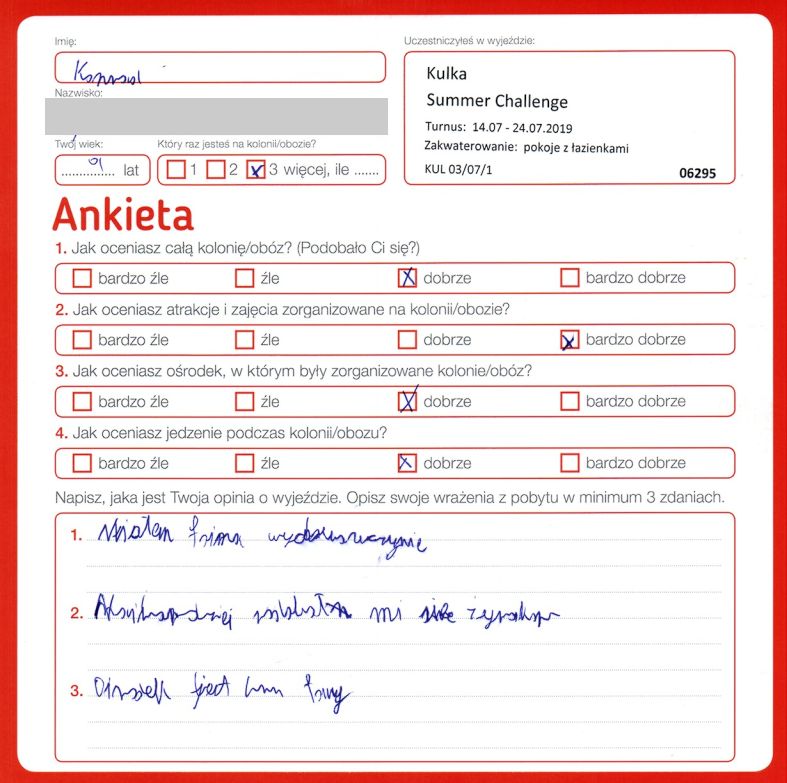 Imię:
Konrad
Nazwisko:
Twój wiek:
9 lat
Który raz jesteś na kolonii/obozie?
1 2 3 więcej, ile .......
Uczestniczyłeś w wyjeździe:
Kulka
Summer Challenge
Turnus: 14.07 - 24.07.2019
Zakwaterowanie: pokoje z łazienkami
KUL 03/07/1 06295
Ankieta
1. Jak oceniasz całą kolonię/obóz? (Podobało Ci się?)
bardzo źle źle dobrze bardzo dobrze
2. Jak oceniasz atrakcje i zajęcia zorganizowane na kolonii/obozie?
bardzo źle źle dobrze bardzo dobrze
3. Jak oceniasz ośrodek, w którym były zorganizowane kolonie/obóz?
bardzo źle źle dobrze bardzo dobrze
4. Jak oceniasz jedzenie podczas kolonii/obozu?
bardzo źle źle dobrze bardzo dobrze
Napisz, jaka jest Twoja opinia o wyjeździe. Opisz swoje wrażenia z pobytu w minimum 3 zdaniach.
1. Miałem
2. mi
3. Ośrodek jest